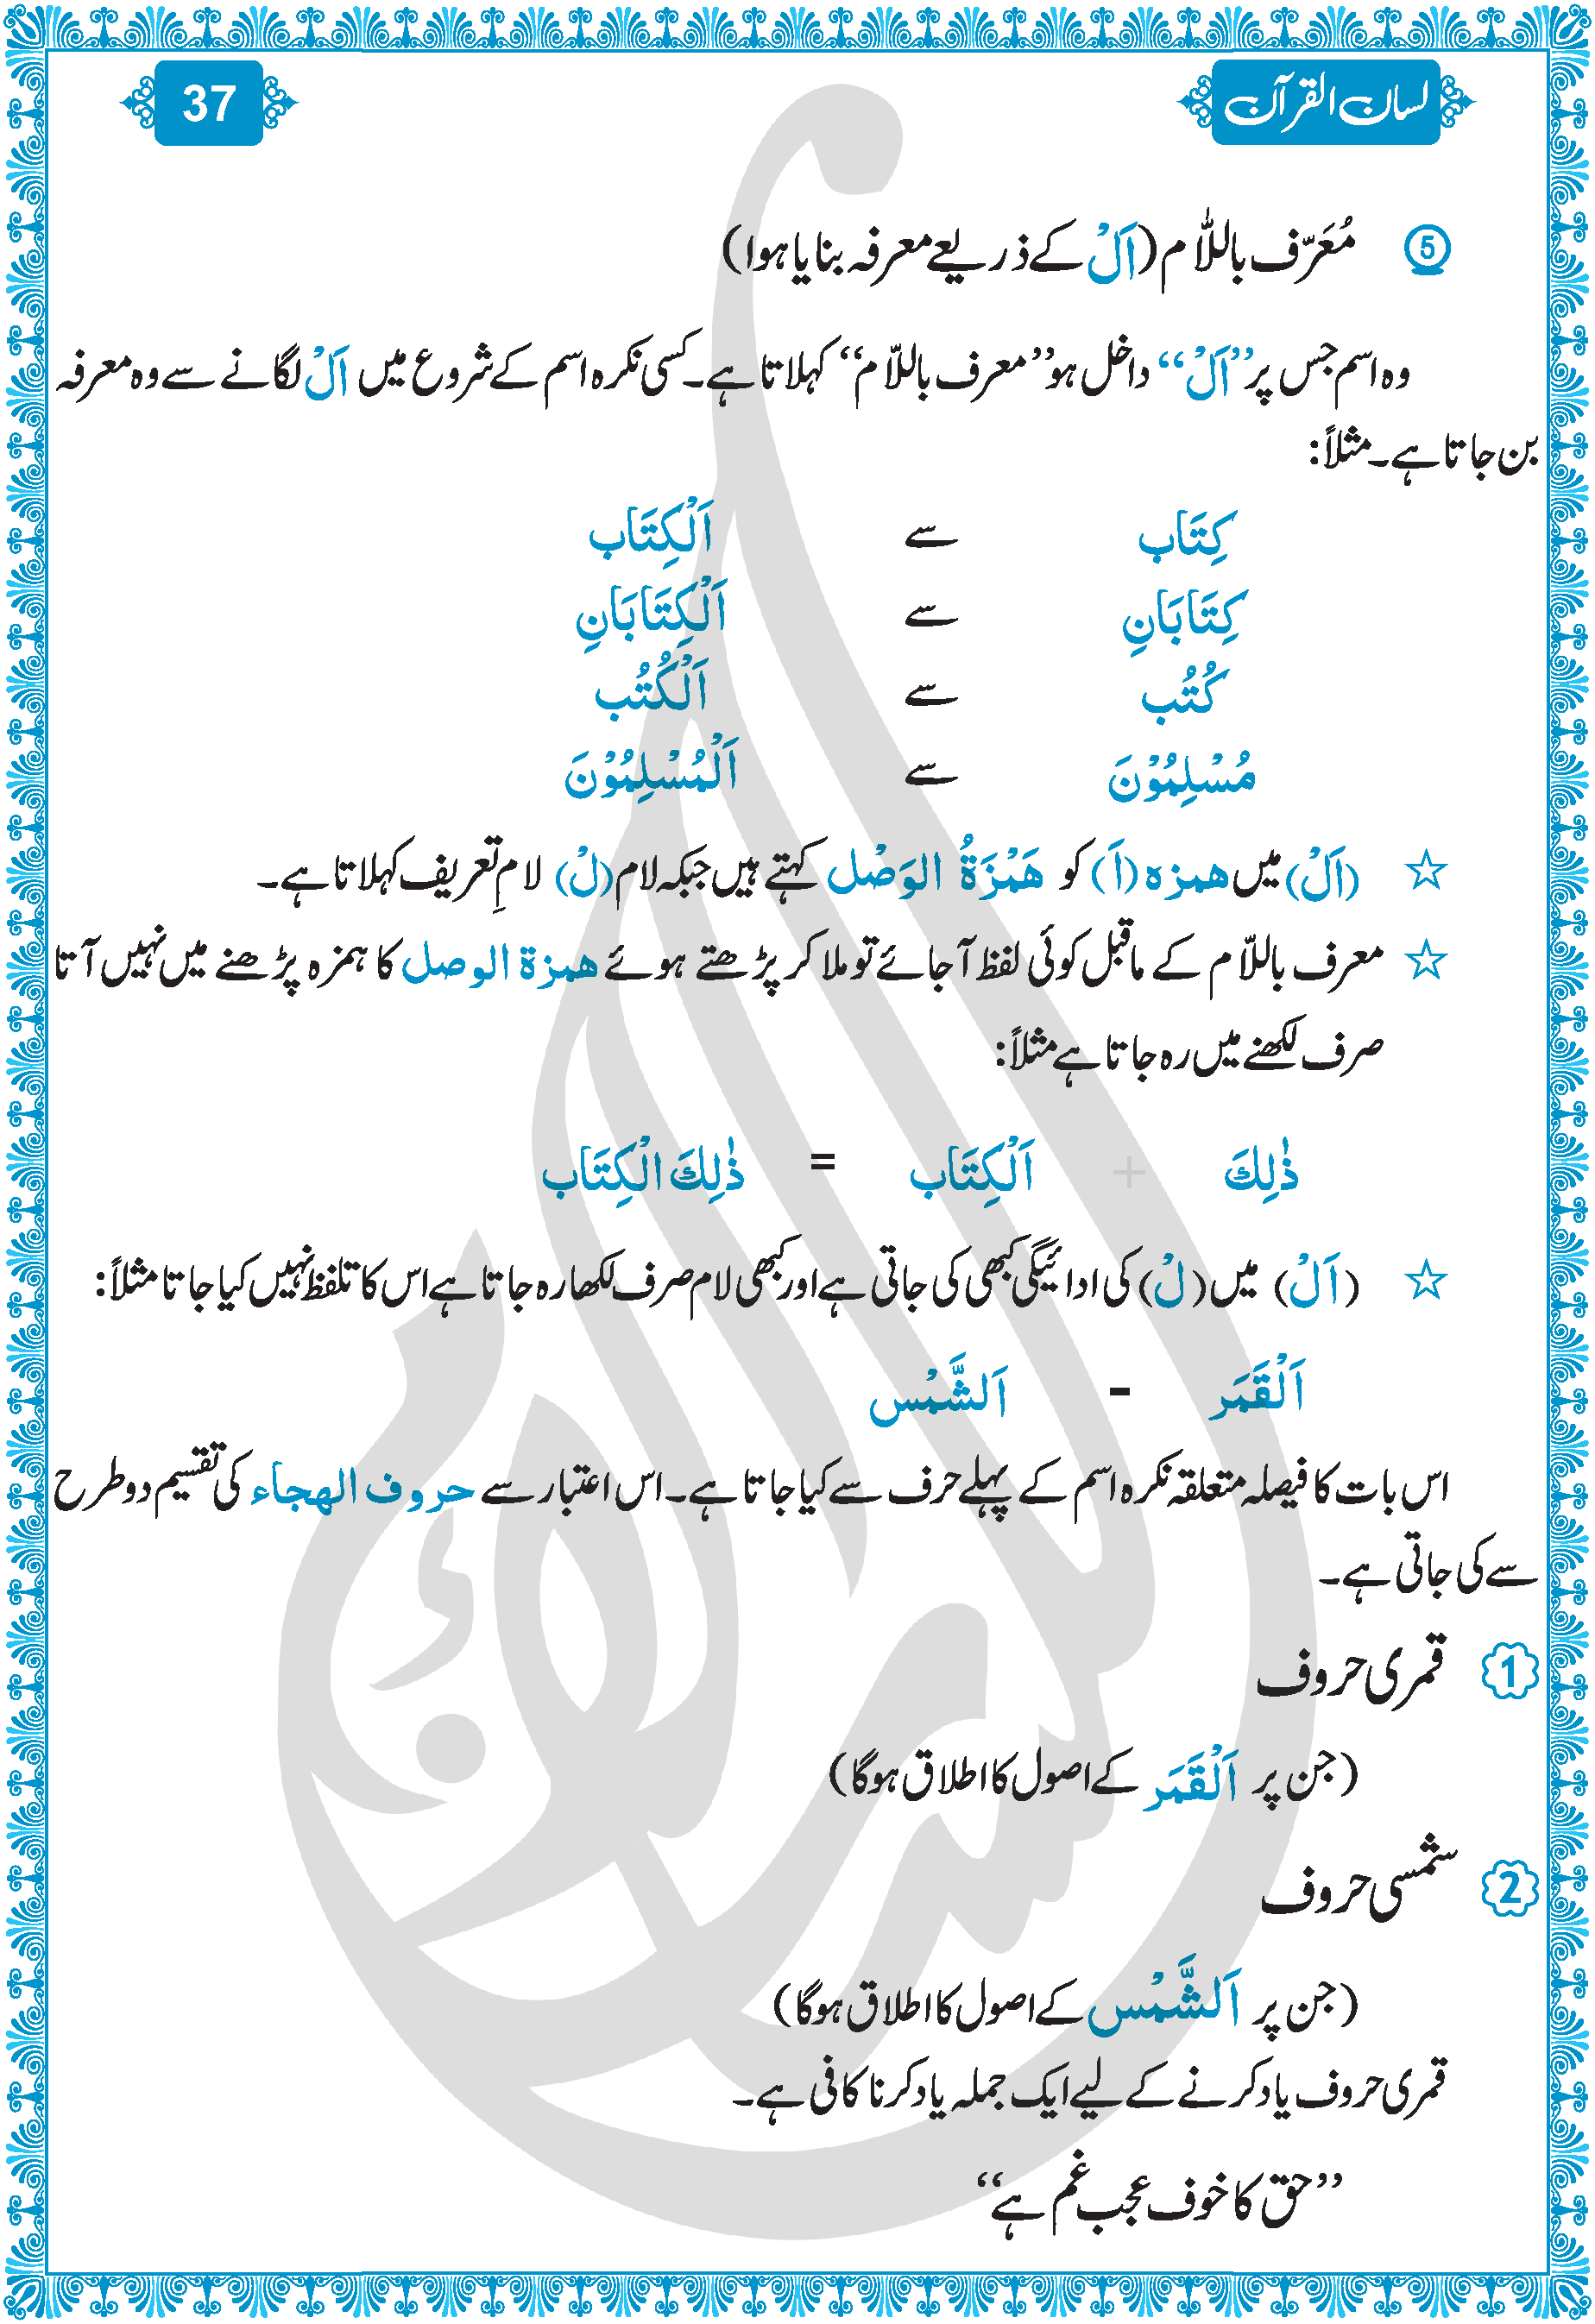 لسان القرآن
37
5 مُعَرَّف باللّام (اَلْ کے ذریعے معرفہ بنایا ہوا)
وہ اسم جس پر ’’اَلْ‘‘ داخل ہو ’’معرف باللّام‘‘ کہلاتا ہے۔ کسی نکرہ اسم کے شروع میں اَلْ لگانے سے وہ معرفہ
بن جاتا ہے۔ مثلاً:
كِتَاب سے اَلْكِتَاب
كِتَابَانِ سے اَلْكِتَابَانِ
كُتُب سے اَلْكُتُب
مُسْلِمُوْنَ سے اَلْمُسْلِمُوْنَ
☆ (اَلْ) میں همزہ (اَ) کو هَمْزَةُ الوَصْل کہتے ہیں جبکہ لام (لْ) لامِ تعریف کہلاتا ہے۔
☆ معرف باللّام کے ماقبل کوئی لفظ آجائے تو ملا کر پڑھتے ہوئے همزة الوصل کا ہمزہ پڑھنے میں نہیں آتا
صرف لکھنے میں رہ جاتا ہے مثلاً:
ذٰلِكَ + اَلْكِتَاب = ذٰلِكَ الْكِتَاب
☆ (اَلْ) میں (لْ) کی ادائیگی کبھی کی جاتی ہے اور کبھی لام صرف لکھا رہ جاتا ہے اس کا تلفظ نہیں کیا جاتا مثلاً:
اَلْقَمَر - اَلشَّمْس
اس بات کا فیصلہ متعلقہ نکرہ اسم کے پہلے حرف سے کیا جاتا ہے۔ اس اعتبار سے حروف الهجاء کی تقسیم دو طرح
سے کی جاتی ہے۔
1 قمری حروف
(جن پر اَلْقَمَر کے اصول کا اطلاق ہوگا)
2 شمسی حروف
(جن پر اَلشَّمْس کے اصول کا اطلاق ہوگا)
قمری حروف یاد کرنے کے لیے ایک جملہ یاد کرنا کافی ہے۔
’’حق کا خوف عجب غم ہے‘‘